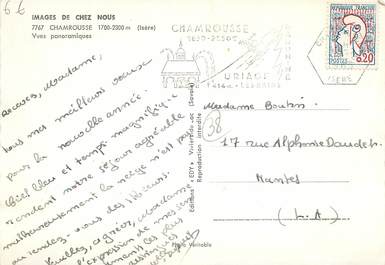 IMAGES DE CHEZ NOUS
7767 CHAMROUSSE 1700-2300 m (Isère)
Vues panoramiques
Recevez, Madame,
tous mes meilleurs vœux
pour la nouvelle année.
Ciel bleu et temps magnifique
rendent notre séjour agréable
malheureusement la neige n'est pas
au rendez-vous des skieurs.
Veuillez, agréer, Madame
l'expression de mes
sentiments les plus
Editions "EDY"
Reproduction interdite
Photo Véritable
CHAMROUSSE
1650-2250m
URIAGE
RÉPUBLIQUE FRANÇAISE
POSTES
0,20
ISERE
38
Madame Boutin
17 rue Alphonse Daudet
Nantes
(L.A.)